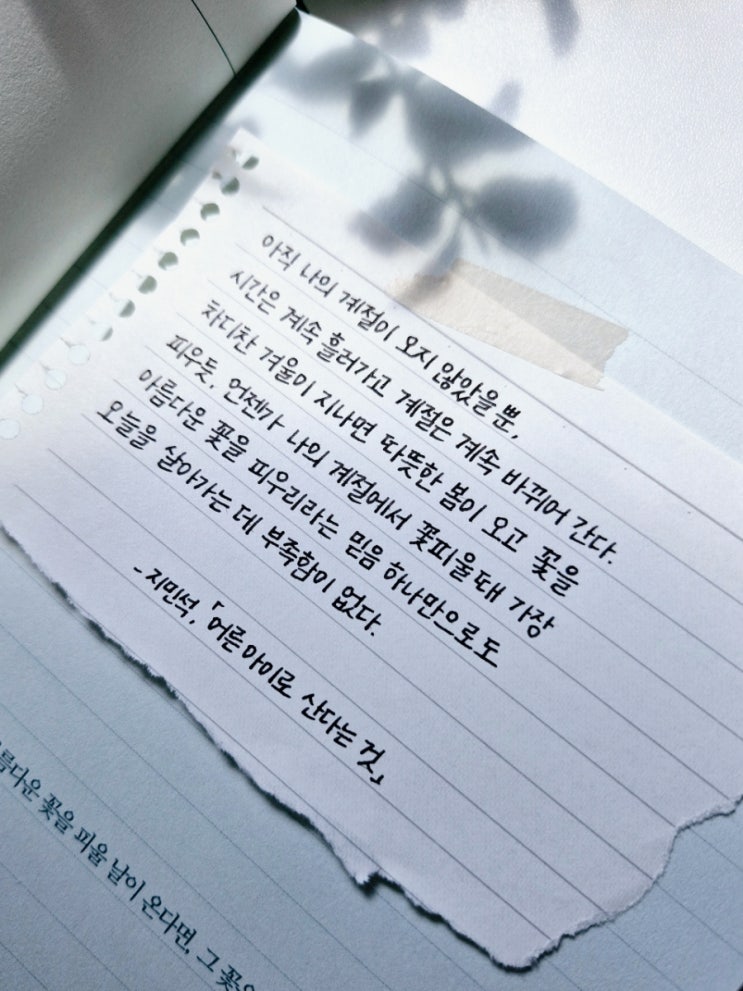 아직 나의 계절이 오지 않았을 뿐,
시간은 계속 흘러가고 계절은 계속 바뀌어 간다.
차디찬 겨울이 지나면 따뜻한 봄이 오고 꽃을
피우듯, 언젠가 나의 계절에서 꽃피울 때 가장
아름다운 꽃을 피우리라는 믿음 하나만으로도
오늘을 살아가는 데 부족함이 없다.
- 지민석, 「어른아이로 산다는 것」
름다운 꽃을 피울 날이 온다면, 그 꽃은